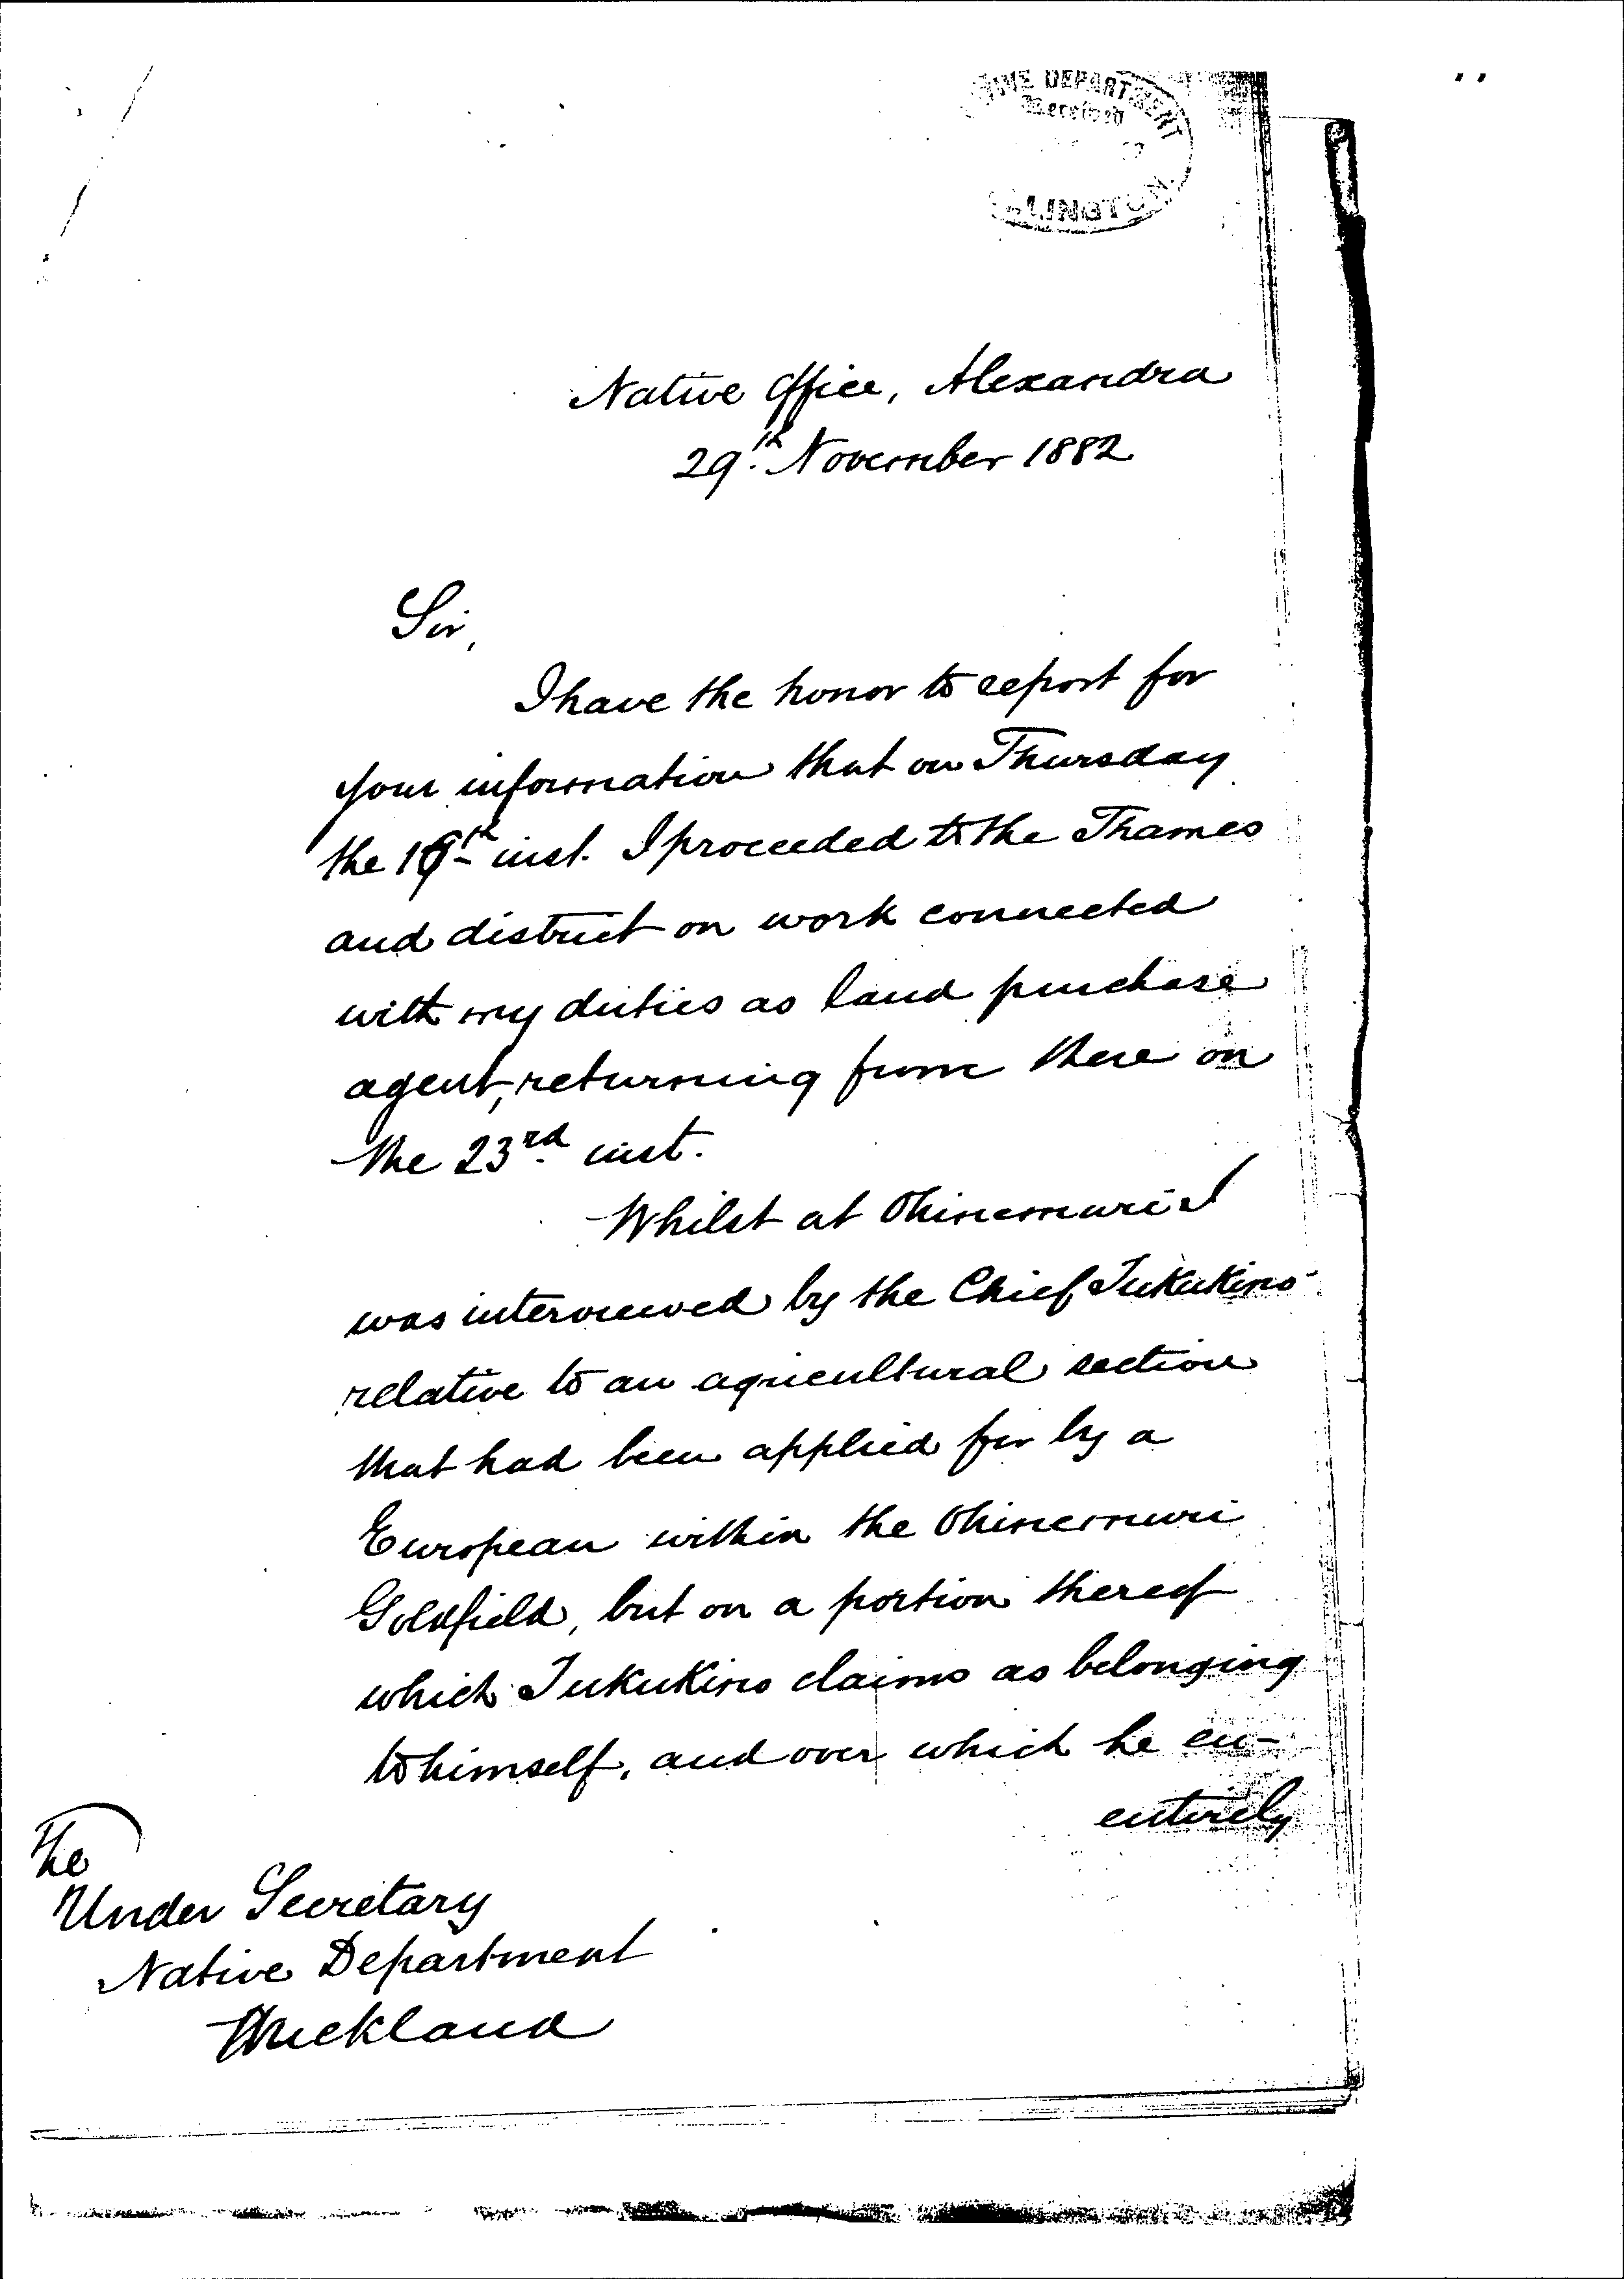 DEPARTMENT
Received
Native Office, Alexandra
29th November 1882
Sir,
I have the honor to report for
your information that on Thursday
the inst. I proceeded to the Thames
and district on work connected
with my duties as land purchase
agent, returning from there on
the 23rd inst.
Whilst at Ohinemuri I
was interviewed by the Chief Tukukino
relative to an agricultural section
that had been applied for by a
European within the Ohinemuri
Goldfield, but on a portion thereof
which Tukukino claims as belonging
to himself, and over which he en-
entirely
The
Under Secretary
Native Department
Auckland